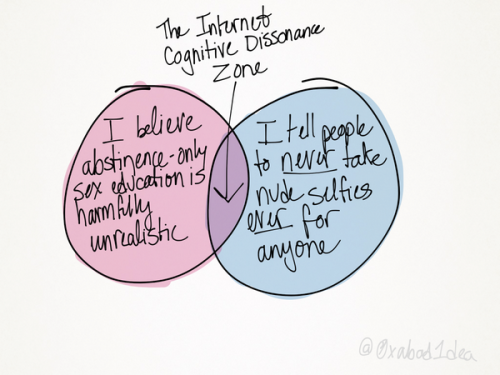 The Internet
Cognitive Dissonance
Zone
I believe
abstinence-only
sex education is
harmfully
unrealistic
I tell people
to never take
nude selfies
ever for
anyone
@0xabad1dea